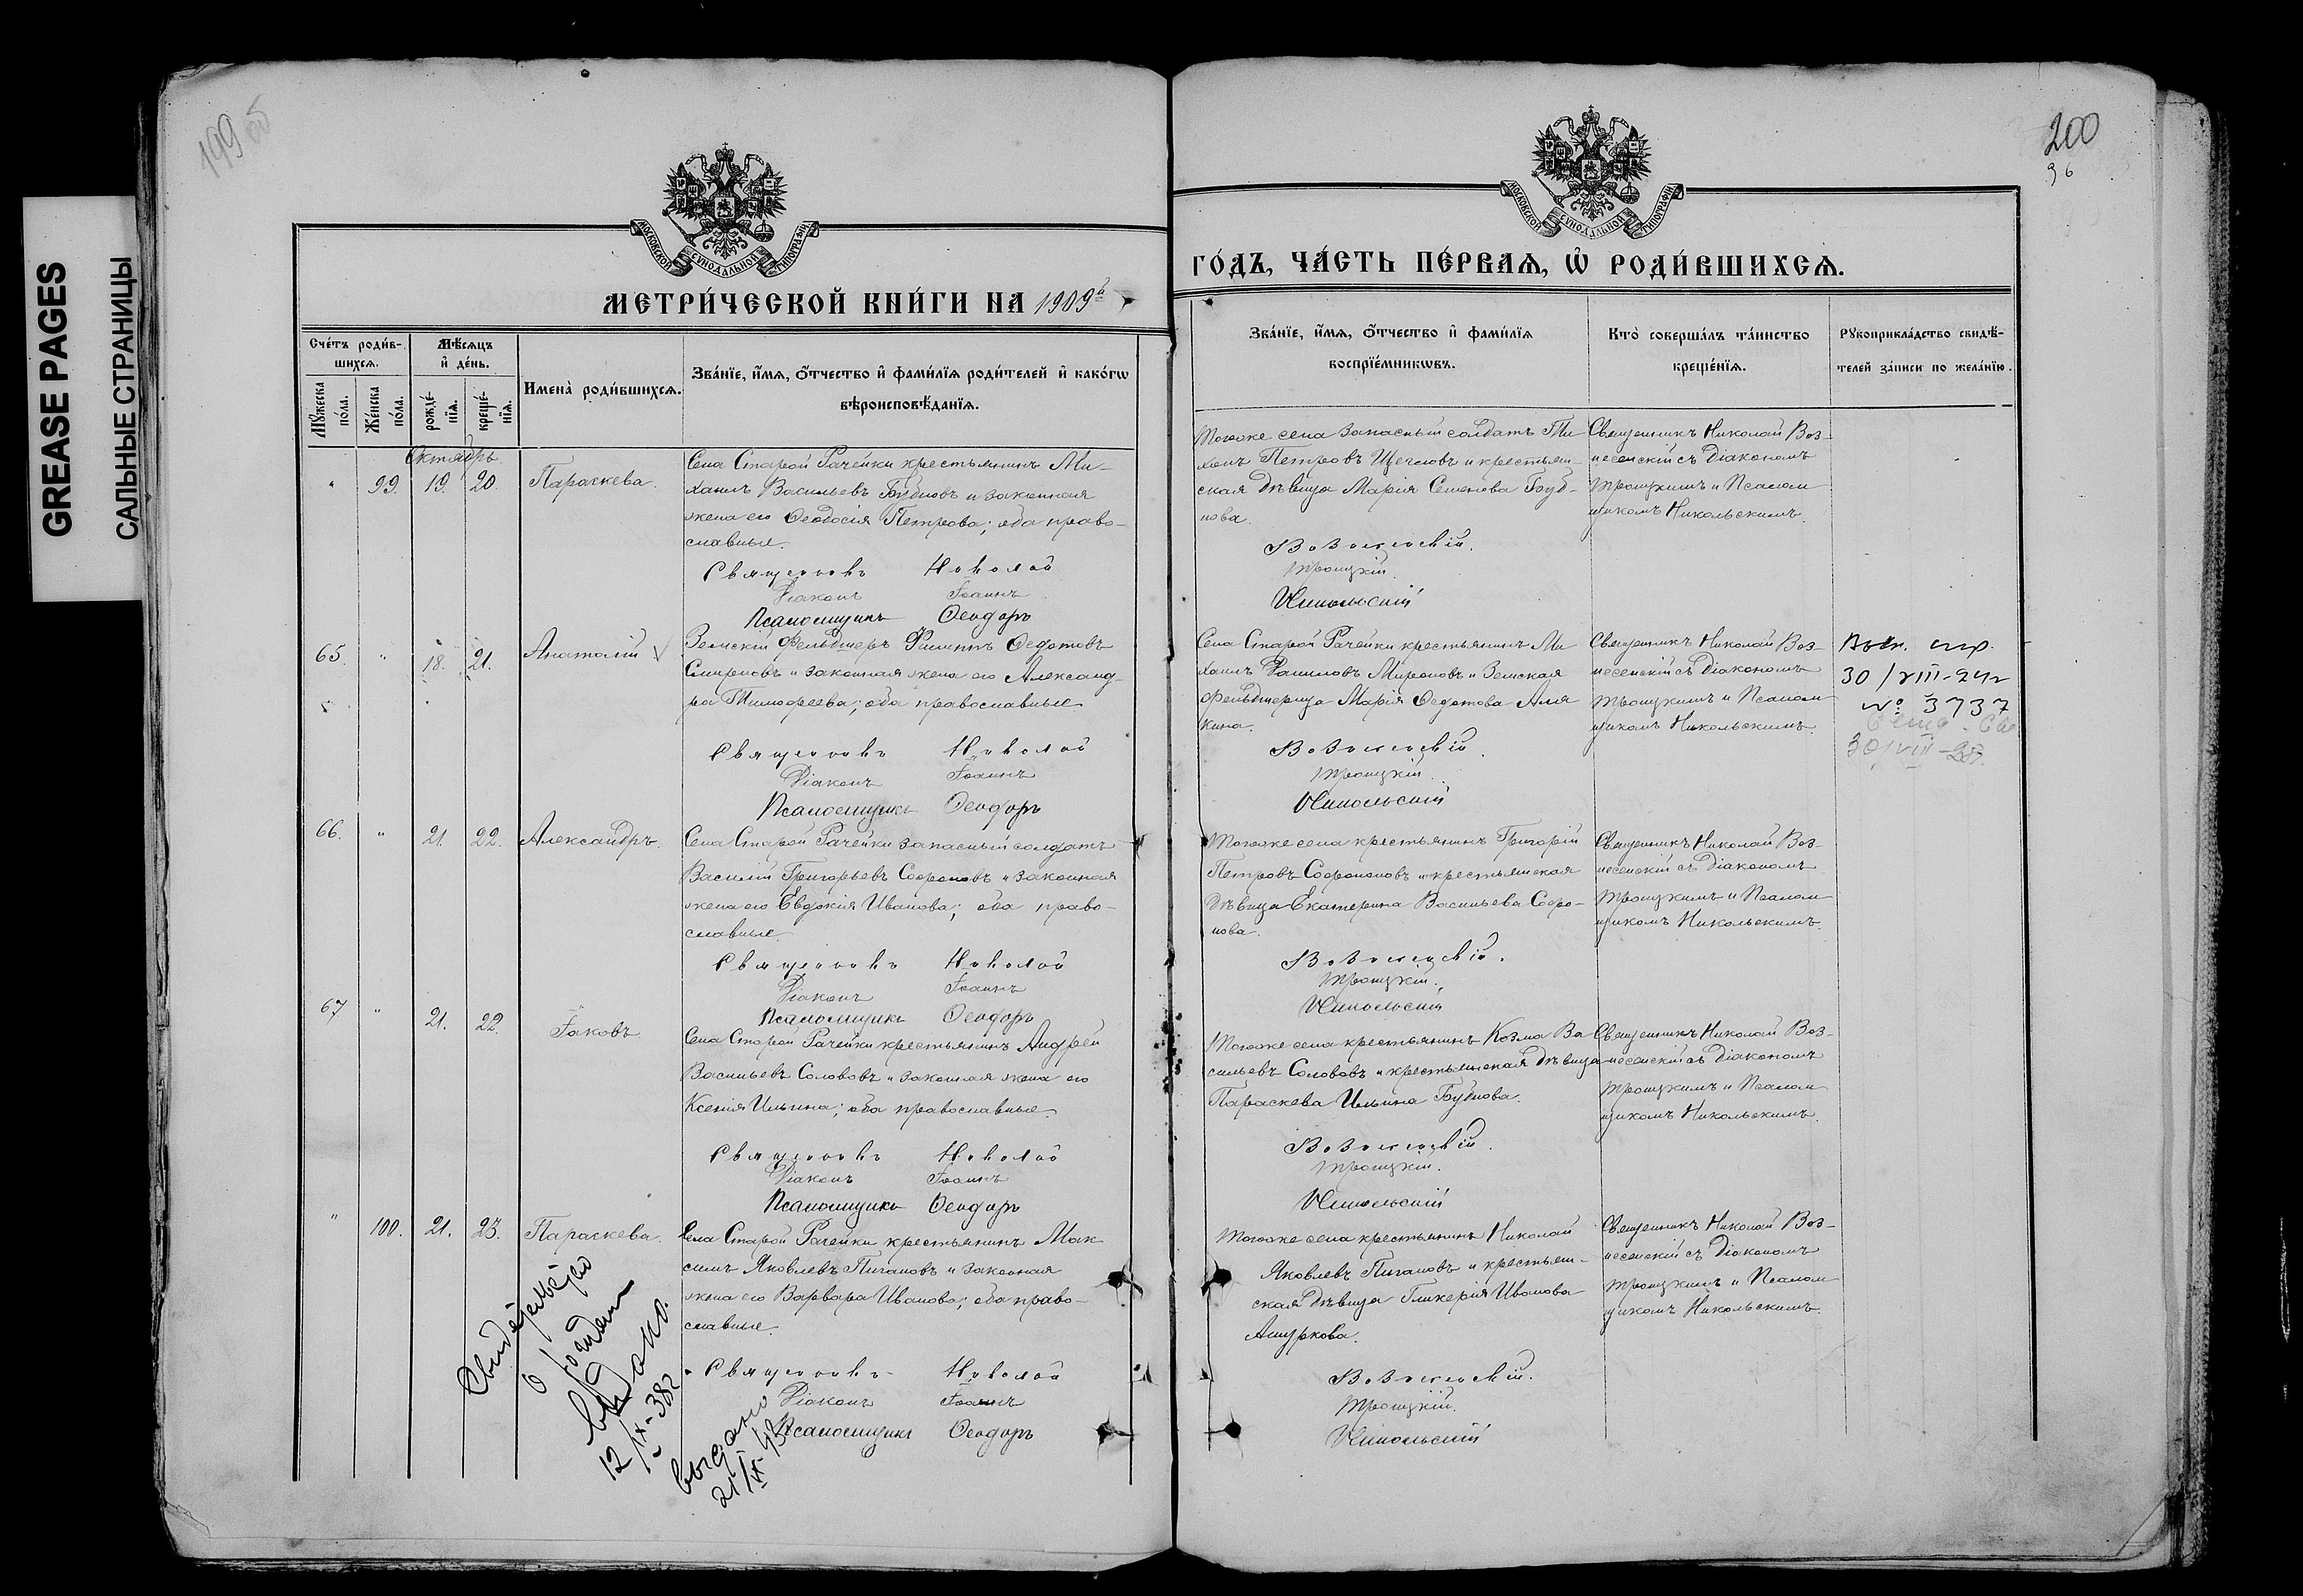 GREASE PAGES
САЛЬНЫЕ СТРАНИЦЫ
199 об
МОСКОВСКОЙ СУНОДАЛЬНОЙ ТИПОГРАФІИ
МЕТРИ́ЧЕСКОЙ КНИ́ГИ НА 1909й
Сче́тъ роди́в-
шихся.
Мѣ́сяцъ
и҆ де́нь.
Му́жеска по́ла.
Же́нска по́ла.
рожде́-нїя.
креще́-нїя.
Имена̀ роди́вшихся.
Зва́нїе, и҆́мя, ѻ҆́тчество и҆ фами́лїя роди́телей и҆ како́гѡ
вѣроисповѣ́данїя.
Октябрь
" 99. 19. 20. Параскева.
Села Старой Рачейки крестьянинъ Ми-
хаилъ Васильевъ Бубновъ и законная
жена его Ѳеодосія Петрова; оба право-
славные.
Священникъ Николай
Діаконъ Іоаннъ
Псаломщикъ Ѳеодоръ
65. " 18. 21. Анатолій
Земскій Фельдшеръ Филиппъ Ѳедотовъ
Смирновъ и законная жена его Александ-
ра Тимофеева; оба православные
Священникъ Николай
Діаконъ Іоаннъ
Псаломщикъ Ѳеодоръ
66. " 21. 22. Александръ.
Села Старой Рачейки запасный солдатъ
Василій Григорьевъ Софроновъ и законная
жена его Евдокія Иванова; оба право-
славные.
Священникъ Николай
Діаконъ Іоаннъ
Псаломщикъ Ѳеодоръ
67 " 21. 22. Іаковъ
Села Старой Рачейки крестьянинъ Андрей
Васильевъ Солововъ и законная жена его
Ксенія Ильина; оба православные.
Священникъ Николай
Діаконъ Іоаннъ
Псаломщикъ Ѳеодоръ
" 100. 21. 23. Параскева.
Села Старой Рачейки крестьянинъ Мак
симъ Яковлевъ Пигановъ и законная
жена его Варвара Иванова; оба право-
славные.
Священникъ Николай
Діаконъ Іоаннъ
Псаломщикъ Ѳеодоръ
12/IX-38г
выдано
21/IX-
200
96
МОСКОВСКОЙ СУНОДАЛЬНОЙ ТИПОГРАФІИ
ГО́ДЪ, ЧА́СТЬ ПЕ́РВАЯ, Ѡ҆ РОДИ́ВШИХСЯ.
Зва́нїе, и҆́мя, ѻ҆́тчество и҆ фами́лїя
воспрїе́мникѡвъ.
Кто̀ соверша́лъ та́инство
креще́нїя.
Рꙋкоприкла́дство свидѣ́-
телей за́писи по жела́нїю.
Тогоже села запасный солдатъ Ти-
хонъ Петровъ Щегловъ и крестьян-
ская дѣвица Марія Семенова Буб-
нова.
Священникъ Николай Воз-
несенскій съ Діакономъ
Троицкимъ и Псалом
щикомъ Никольскимъ.
Вознесенскій.
Троицкій.
Никольскій
Села Старой Рачейки крестьянинъ Ми
хаилъ Даниловъ Мироновъ и Земская
Фельдшерица Марія Ѳедотова Аля
кина.
Священникъ Николай Воз-
несенскій съ Діакономъ
Троицкимъ и Псалом
щикомъ Никольскимъ.
30/VIII-24г
№ 3737
30/VIII
Вознесенскій.
Троицкій.
Никольскій
Тогоже села крестьянинъ Григорій
Петровъ Софроновъ и крестьянская
дѣвица Екатерина Васильева Софро-
нова.
Священникъ Николай Воз-
несенскій съ Діакономъ
Троицкимъ и Псалом
щикомъ Никольскимъ.
Вознесенскій.
Троицкій.
Никольскій
Тогоже села крестьянинъ Козма Ва
сильевъ Солововъ и крестьянская дѣвица
Параскева Ильина Бубнова.
Священникъ Николай Воз-
несенскій съ Діакономъ
Троицкимъ и Псалом
щикомъ Никольскимъ.
Вознесенскій.
Троицкій.
Никольскій
Тогоже села крестьянинъ Николай
Яковлевъ Пигановъ и крестьян-
ская дѣвица Гликерія Иванова
Ашуркова.
Священникъ Николай Воз-
несенскій съ Діакономъ
Троицкимъ и Псалом
щикомъ Никольскимъ.
Вознесенскій.
Троицкій.
Никольскій